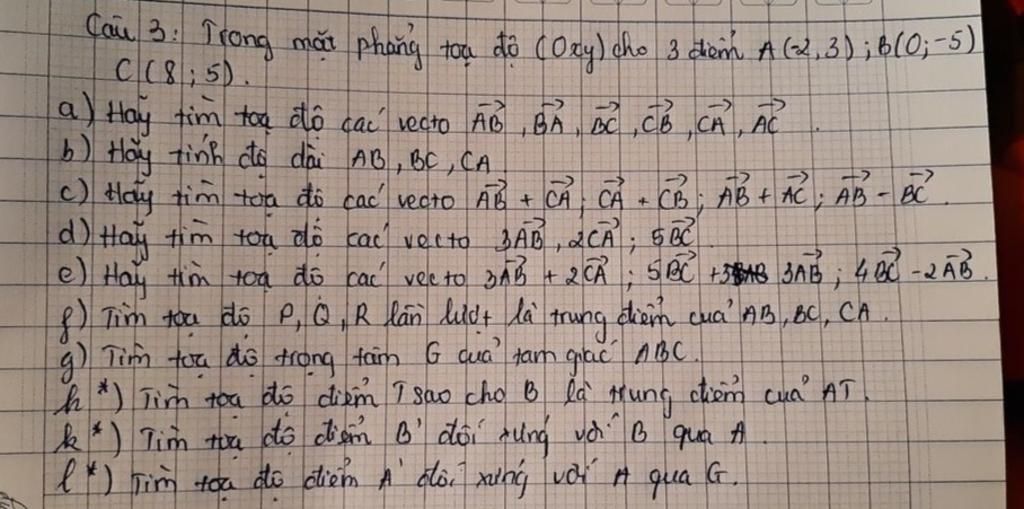 Câu 3: Trong mặt phẳng toạ độ (Oxy) cho 3 điểm A(-2,3); B(0;-5)
C(8;5).
a) Hãy tìm toạ độ các vecto $\overrightarrow{AB}$, $\overrightarrow{BA}$, $\overrightarrow{BC}$, $\overrightarrow{CB}$, $\overrightarrow{CA}$, $\overrightarrow{AC}$.
b) Hãy tính độ dài AB, BC, CA
c) Hãy tìm toạ độ các vecto $\overrightarrow{AB}$ + $\overrightarrow{CA}$; $\overrightarrow{CA}$ + $\overrightarrow{CB}$; $\overrightarrow{AB}$ + $\overrightarrow{AC}$; $\overrightarrow{AB}$ - $\overrightarrow{BC}$.
d) Hãy tìm toạ độ các vecto 3$\overrightarrow{AB}$, 2$\overrightarrow{CA}$; 5$\overrightarrow{BC}$
e) Hãy tìm toạ độ các vecto 3$\overrightarrow{AB}$ + 2$\overrightarrow{CA}$; 5$\overrightarrow{BC}$ + 3$\overrightarrow{AB}$; 4$\overrightarrow{BC}$ - 2$\overrightarrow{AB}$.
f) Tìm toạ độ P, Q, R lần lượt là trung điểm của AB, BC, CA.
g) Tìm toạ độ trọng tâm G của tam giác ABC.
h*) Tìm toạ độ điểm T sao cho B là trung điểm của AT.
k*) Tìm toạ độ điểm B' đối xứng với B qua A.
l*) Tìm toạ độ điểm A' đối xứng với A qua G.